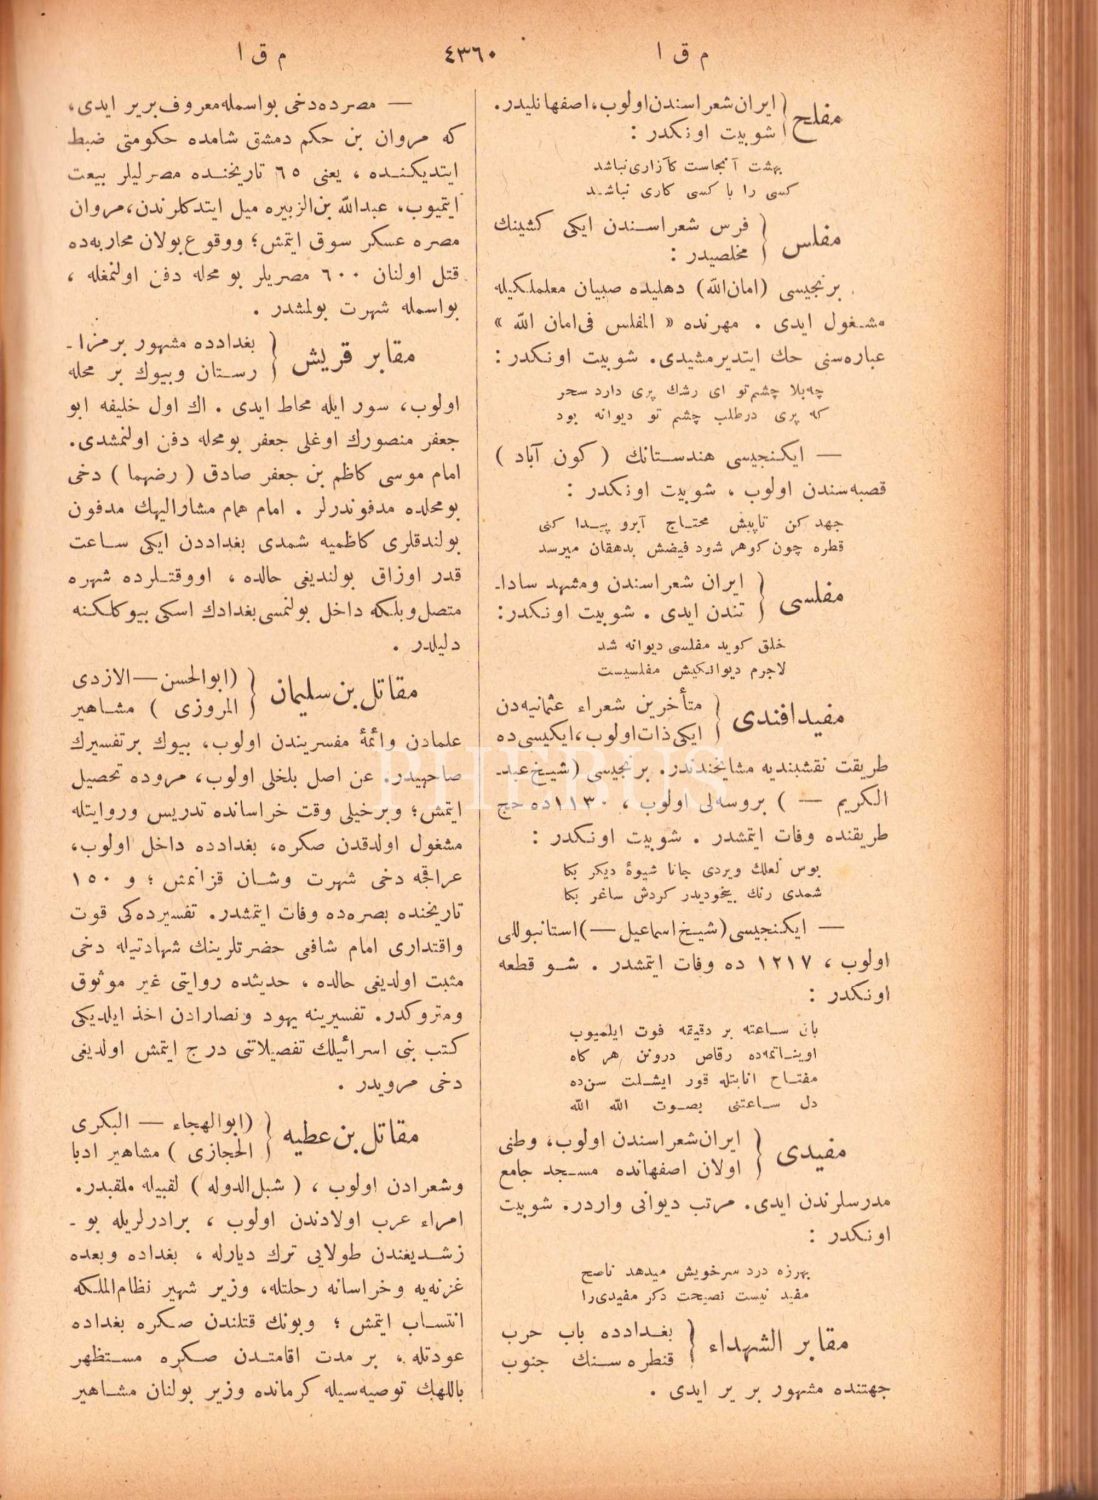 م ق ا
٤٣٦٠
م ق ا
مفلح { ایران شعراسندن اولوب، اصفهانلیدر.
شو بیت اونكدر :
بهشت آنجاست كآزاری نباشد
كسی را با كسی كاری نباشد
مفلس { فرس شعراسندن ایكی كشینك
مخلصیدر :
برنجیسی (امان الله) دهلیده صبیان معلملكیله
مشغول ایدی . مهرنده « المفلس فی امان الله »
عباره‌سنی حك ایتدیرمشیدی. شو بیت اونكدر :
چه بلا چشم تو ای رشك پری دارد سحر
كه پری درطلب چشم تو دیوانه بود
— ایكنجیسی هندستانك ( كون آباد )
قصبه‌سندن اولوب ، شو بیت اونكدر :
جهد كن تاپیش محتاج آبرو پیدا كنی
قطره چون كوهر شود فیضش بدهقان میرسد
مفلسی { ایران شعراسندن ومشهد سادا-
تندن ایدی . شو بیت اونكدر:
خلق كوید مفلسی دیوانه شد
لاجرم دیوانكیش مفلسیست
مفید افندی { متأخرین شعراء عثمانیه‌دن
ایكی ذات اولوب، ایكیسی ده
طریقت نقشبندیه مشایخندندر. برنجیسی (شیخ عبد-
الكریم — ) بروسه‌لی اولوب ، ١١٣٠ ده حج
طریقنده وفات ایتمشدر . شو بیت اونكدر :
بوس لعلك ویردی جانا شیوۀ دیكر بكا
شمدی رنك بیخودیدر كردش ساغر بكا
— ایكنجیسی (شیخ اسماعیل —) استانبوللی
اولوب ، ١٢١٧ ده وفات ایتمشدر . شو قطعه
اونكدر :
بان ساعته بر دقیقه فوت ایلمیوب
اویناتمه‌ده رقاص درونن هر كاه
مفتاح انابتله قور ایشلت سن‌ده
دل ساعتنی بصوت الله الله
مفیدی { ایران شعراسندن اولوب، وطنی
اولان اصفهانده مسجد جامع
مدرسلرندن ایدی. مرتب دیوانی واردر. شو بیت
اونكدر :
بهرزه درد سرخویش میدهد ناصح
مفید نیست نصیحت دكر مفیدی را
مقابر الشهداء { بغدادده باب حرب
قنطره‌سنك جنوب
جهتنده مشهور بر یر ایدی .
— مصرده دخی بو اسمله معروف بر یر ایدی،
كه مروان بن حكم دمشق شامده حكومتی ضبط
ایتدیكنده ، یعنی ٦٥ تاریخنده مصرلیلر بیعت
ایتمیوب، عبدالله بن الزبیره میل ایتدكلرندن، مروان
مصره عسكر سوق ایتمش؛ ووقوع بولان محاربه‌ده
قتل اولنان ٦٠٠ مصریلر بو محله دفن اولنمغله ،
بواسمله شهرت بولمشدر .
مقابر قریش { بغدادده مشهور بر مزا-
رستان وبیوك بر محله
اولوب، سور ایله محاط ایدی . اك اول خلیفه ابو
جعفر منصورك اوغلی جعفر بومحله دفن اولنمشدی.
امام موسی كاظم بن جعفر صادق ( رضهما ) دخی
بومحلده مدفوندرلر . امام همام مشارالیهك مدفون
بولندقلری كاظمیه شمدی بغداددن ایكی ساعت
قدر اوزاق بولندیغی حالده ، اووقتلرده شهره
متصل وبلكه داخل بولنمسی بغدادك اسكی بیوكلكنه
دلیلدر .
مقاتل بن سلیمان { (ابوالحسن — الازدی
المروزی ) مشاهیر
علمادن وائمۀ مفسریندن اولوب، بیوك بر تفسیرك
صاحبیدر. عن اصل بلخلی اولوب، مروده تحصیل
ایتمش؛ وبر خیلی وقت خراسانده تدریس وروایتله
مشغول اولدقدن صكره، بغدادده داخل اولوب،
عراقجه دخی شهرت وشان قزانمش ؛ و ١٥٠
تاریخنده بصره‌ده وفات ایتمشدر. تفسیرده‌كی قوت
واقتداری امام شافعی حضرتلرینك شهادتیله دخی
مثبت اولدیغی حالده ، حدیثده روایتی غیر موثوق
ومتروكدر. تفسیرینه یهود ونصارادن اخذ ایلدیكی
كتب بنی اسرائیلك تفصیلاتنی درج ایتمش اولدیغی
دخی مرویدر .
مقاتل بن عطیه { (ابوالهجاء — البكری
الحجازی ) مشاهیر ادبا
وشعرادن اولوب ، ( شبل الدوله ) لقبیله ملقبدر.
امراء عرب اولادندن اولوب ، برادرلریله بو-
زشدیغندن طولایی ترك دیارله ، بغداده وبعده
غزنه‌یه وخراسانه رحلتله، وزیر شهیر نظام الملكه
انتساب ایتمش ؛ وبونك قتلندن صكره بغداده
عودتله ، بر مدت اقامتدن صكره مستظهر
باللهك توصیه‌سیله كرمانده وزیر بولنان مشاهیر
PHEBUS